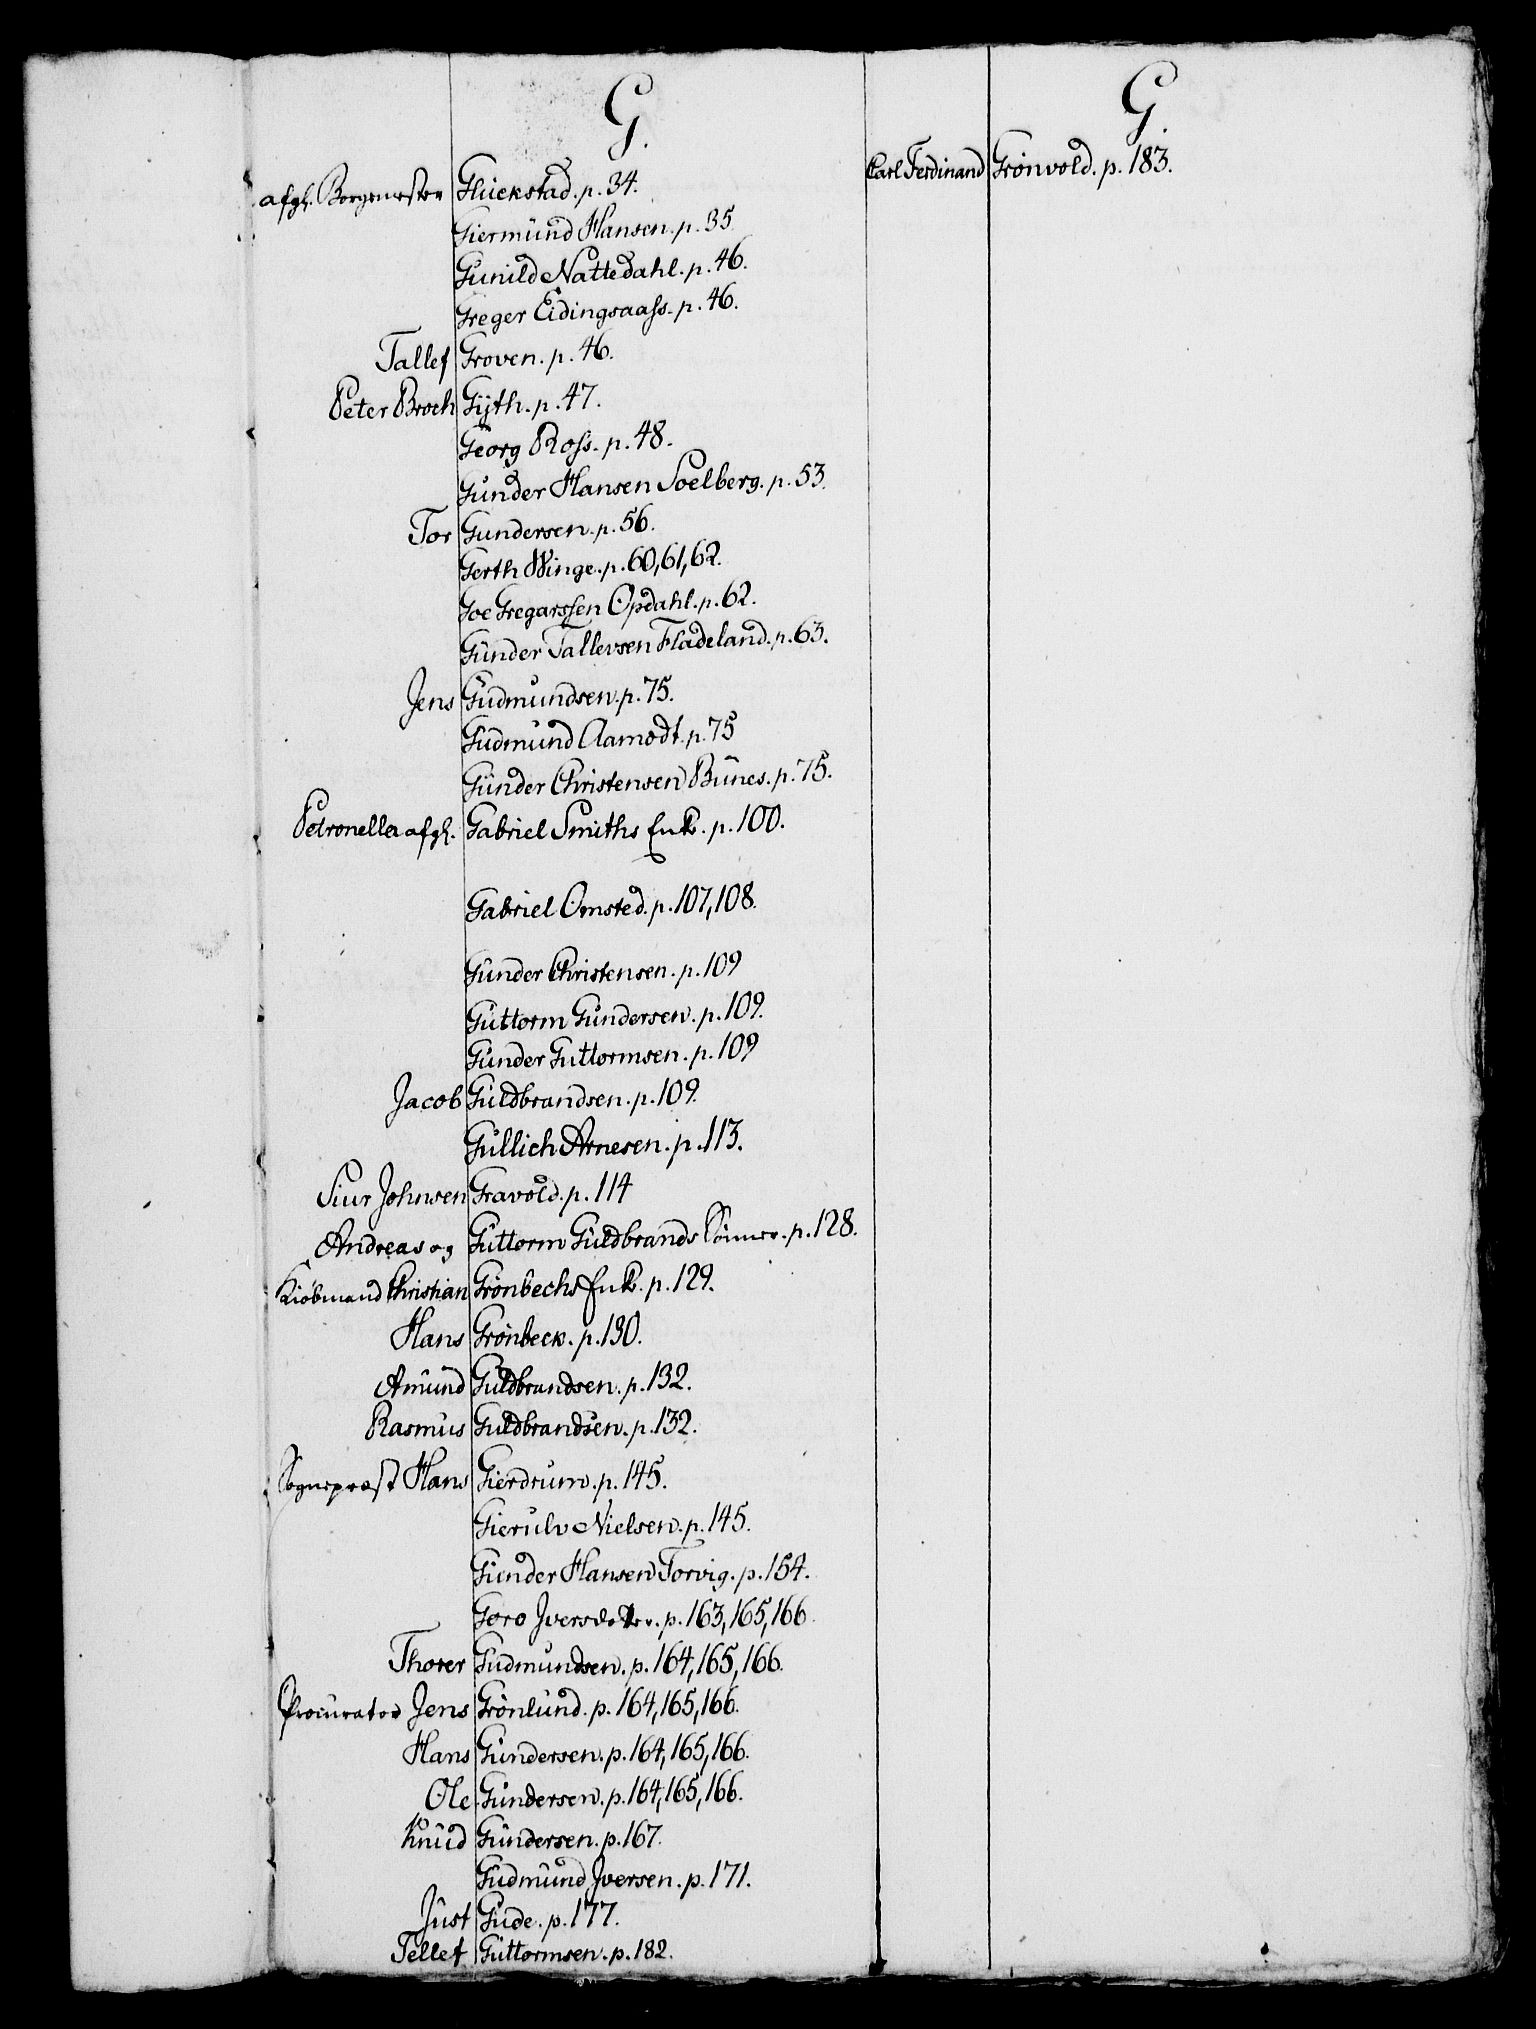 G.
afgl. Borgemester Glückstad. p. 34.
Giermünd Hansen. p. 35
Gunild Nattedahl. p. 46.
Greger Eidingsaass. p. 46.
Tallef Groven. p. 46.
Peter Broch Gyth. p. 47.
Georg Ross. p. 48.
Gunder Hansen Soelberg. p. 53.
Tor Gundersen. p. 56.
Gerth Winge. p. 60, 61, 62.
Goe Gregarssen Opdahl. p. 62.
Gunder Tallevsen Fladeland. p. 63.
Jens Gudmundsen. p. 75.
Gudmund Aamodt. p. 75
Gunder Christensen Bunes. p. 75.
Petronella afgl. Gabriel Smiths Enke. p. 100.
Gabriel Omsted. p. 107, 108.
Gunder Christensen. p. 109
Guttorm Gundersen. p. 109.
Gunder Guttormsen. p. 109
Jacob Guldbrandsen. p. 109.
Gullich Arnesen. p. 113.
Siur Johnsen Gravold. p. 114
Andreas og Guttorm Guldbrands Sönner. p. 128.
Kiöbmand Christian Grönbechs Enke. p. 129.
Hans Grönbeck. p. 130.
Amund Guldbrandsen. p. 132.
Rasmus Guldbrandsen. p. 132.
Sognepræst Hans Gierdrum. p. 145.
Gierulv Nielsen. p. 145.
Gunder Hansen Torvig. p. 154.
Goro Iversdatter. p. 163, 165, 166.
Thorer Gudmundsen. p. 164, 165, 166.
Procurator Jens Grönlund. p. 164, 165, 166.
Hans Gundersen. p. 164, 165, 166.
Ole Gundersen. p. 164, 165, 166.
Knud Gundersen. p. 167.
Gudmund Iversen. p. 171.
Just Gude. p. 177.
Tellef Guttormsen. p. 182.
G.
Carl Ferdinand Grönvold. p. 183.